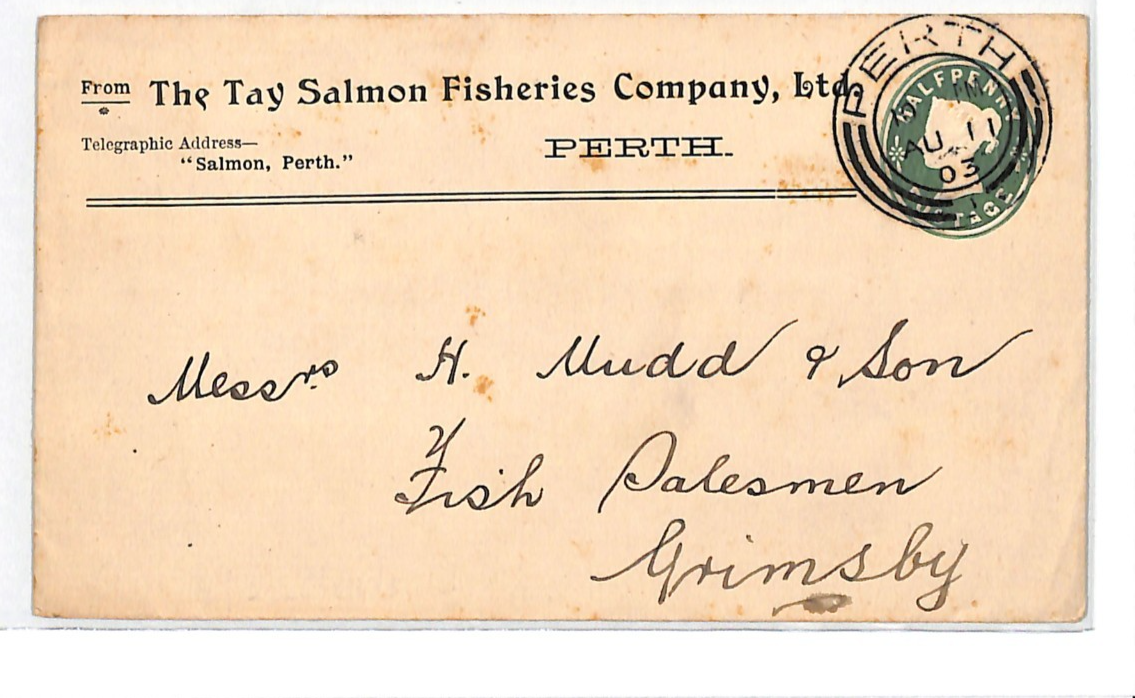 From The Tay Salmon Fisheries Company, Ltd.
Telegraphic Address—
"Salmon, Perth."
PERTH.
PERTH
PM
AU 11
03
HALFPENNY
POSTAGE
Messrs H. Mudd & Son
Fish Salesmen
Grimsby